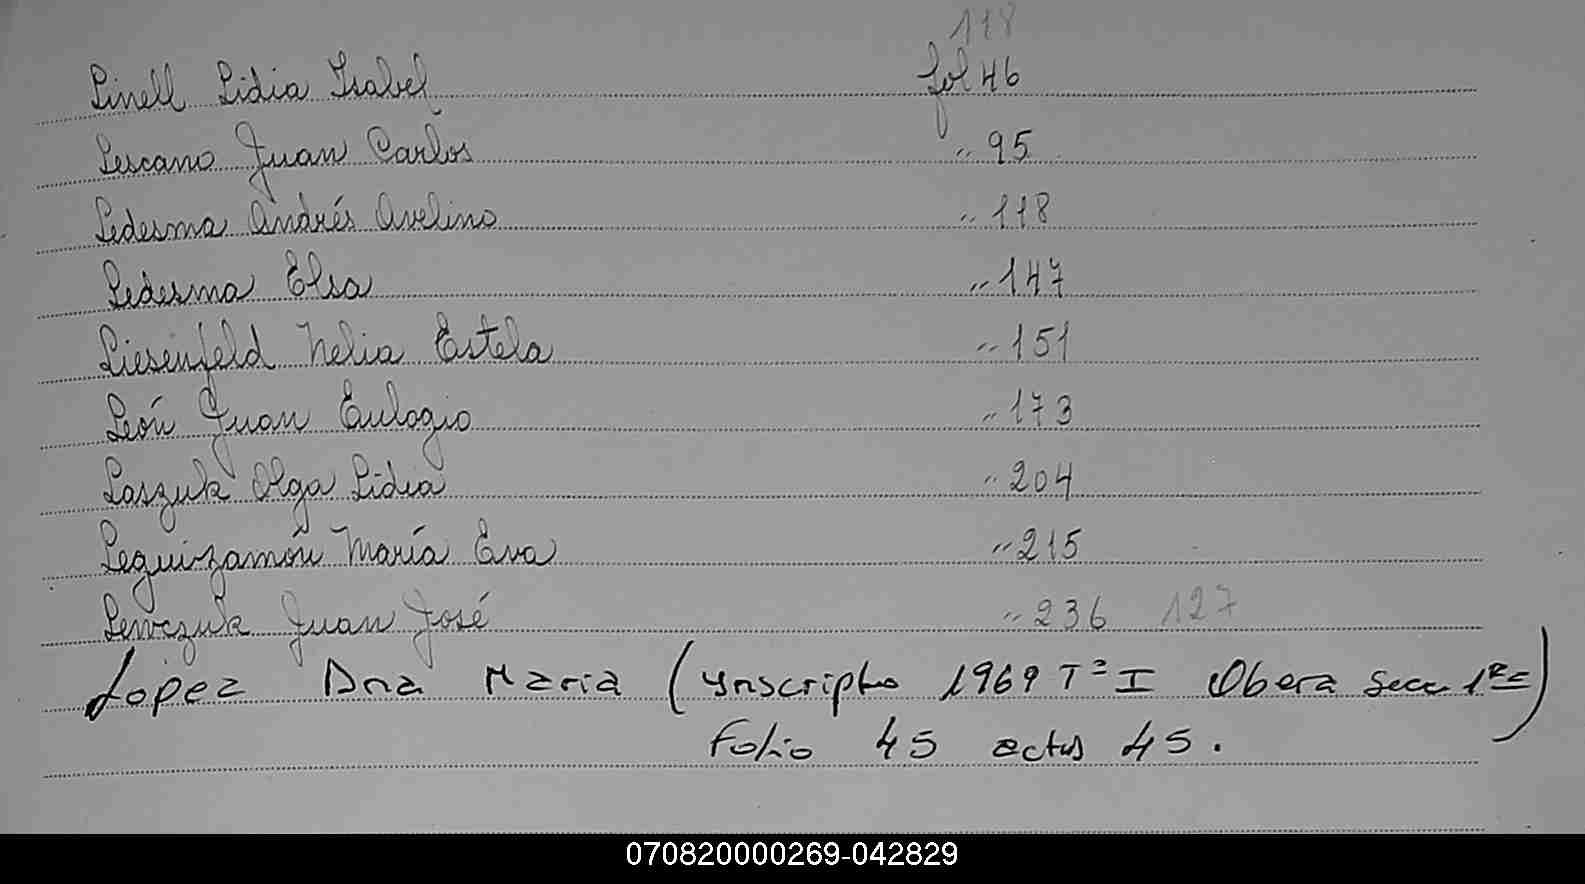 118
Linell Lidia Isabel fol 46
Lescano Juan Carlos " 95
Ledesma Andrés Avelino " 118
Ledesma Elsa " 147
Liesenfeld Nelia Estela " 151
León Juan Eulogio " 173
Laszuk Olga Lidia " 204
Leguizamón María Eva " 215
Lewczuk Juan José " 236 127
Lopez Ana Maria (Ynscripto 1969 Tº I Obera secc 1ra)
Folio 45 actas 45.
070820000269-042829